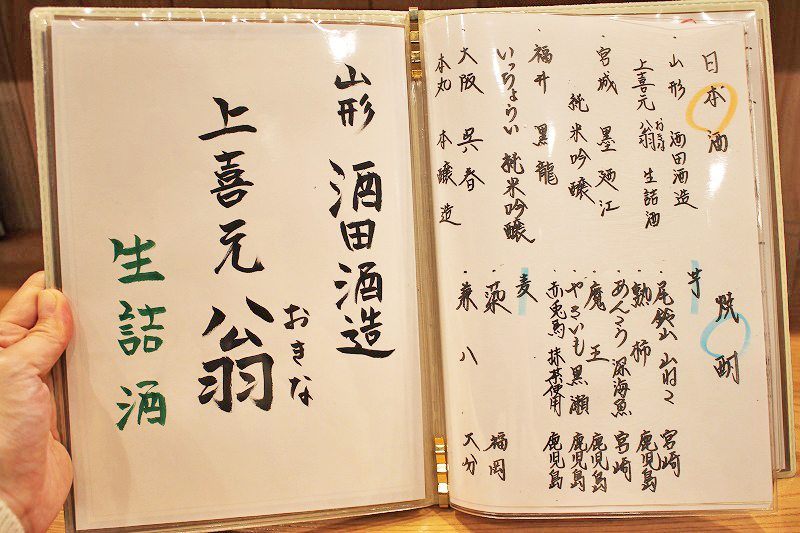 山形 酒田酒造
上喜元 翁
おきな
生詰酒
日本酒
・山形 酒田酒造
上喜元 翁 生詰酒
おきな
・宮城 墨廼江
純米吟醸
・福井 黒龍
いっちょうらい 純米吟醸
・大阪 呉春
本丸 本醸造
焼酎
芋
・尾鈴山 山ねこ 宮崎
・熟柿 鹿児島
・あんこう 深海魚 宮崎
・魔王 鹿児島
・やきいも黒瀬 鹿児島
・赤兎馬 抹茶使用 鹿児島
麦
福岡
・兼八 大分